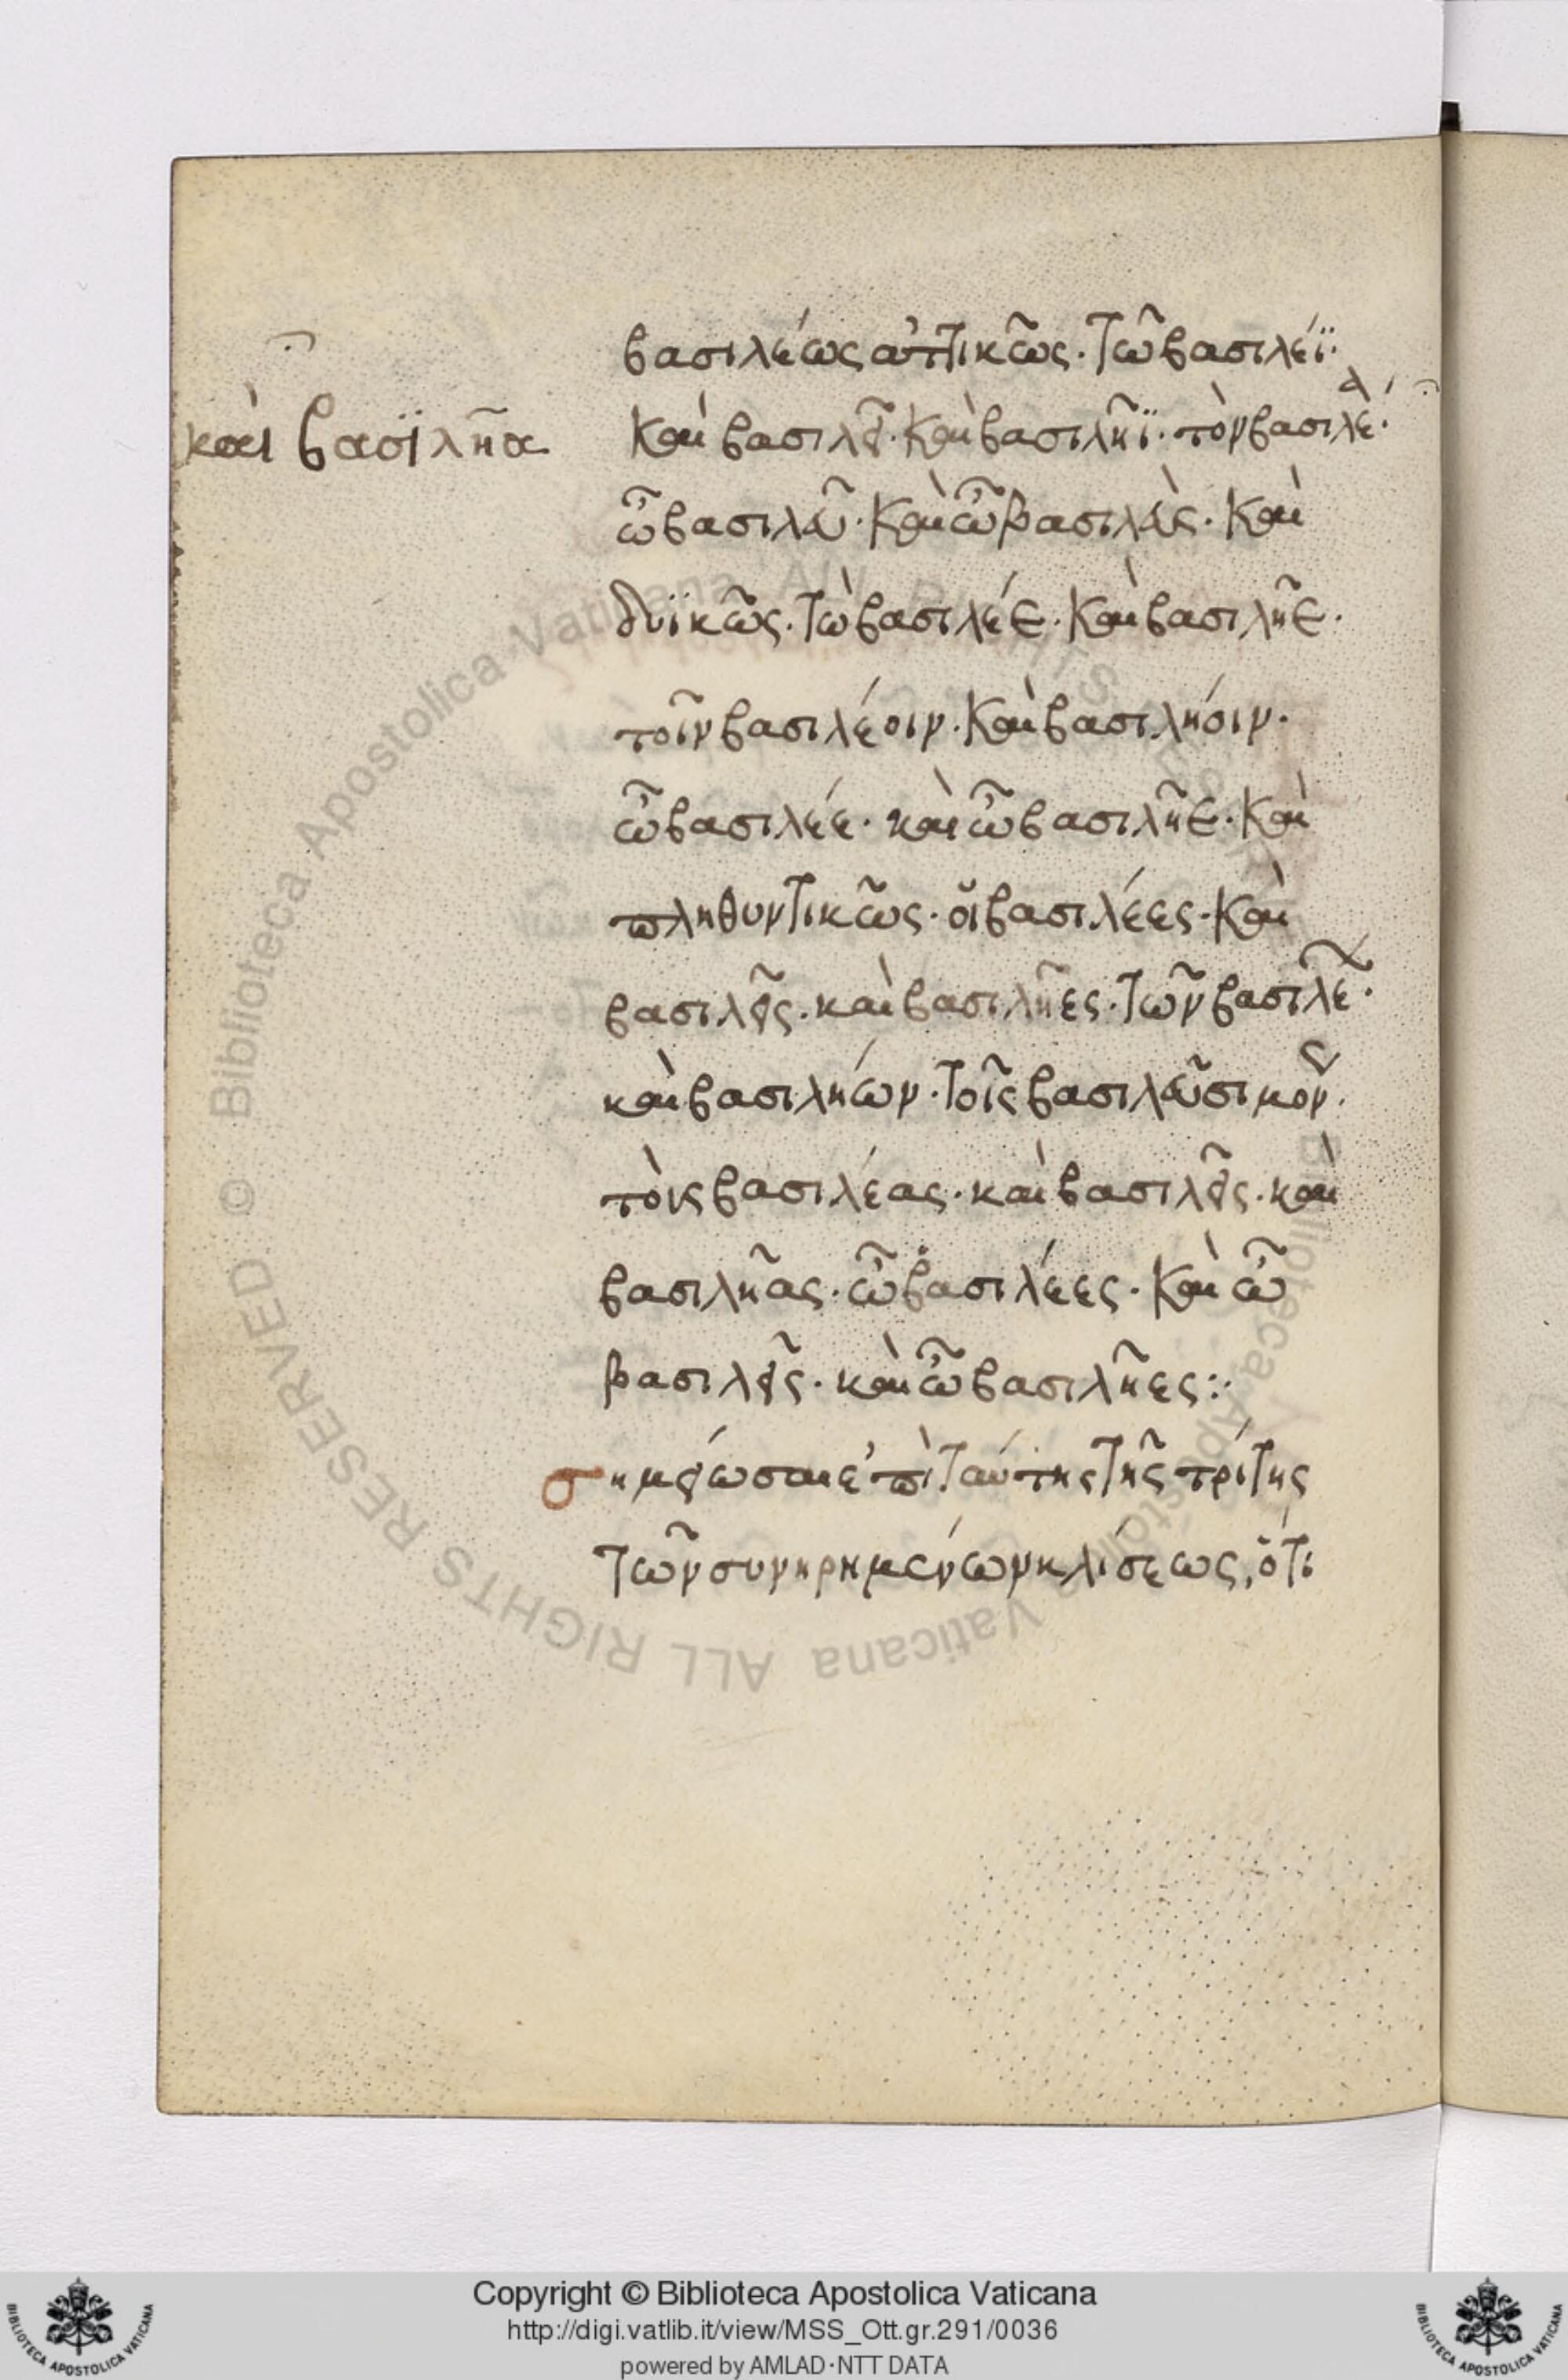 βασιλέως ἀττικῶς· τῶ βασιλέϊ·
καὶ βασιλεῖ· καὶ βασιλῆϊ· τὸν βασιλέα·
καὶ βασιλῆα
ὦ βασιλεῦ· καὶ ὦ βασιλὲς· καὶ
δυϊκῶς· τὼ βασιλέε· καὶ βασιλῆε·
τοῖν βασιλέοιν· καὶ βασιλήοιν·
ὦ βασιλέε· καὶ ὦ βασιλῆε· καὶ
πληθυντικῶς· οἱ βασιλέες· καὶ
βασιλεῖς· καὶ βασιλῆες· τῶν βασιλέων·
καὶ βασιλήων· τοῖς βασιλεῦσι μον·
τοὺς βασιλέας· καὶ βασιλεῖς· καὶ
βασιλῆας· ὦ βασιλέες· καὶ ὦ
βασιλεῖς· καὶ ὦ βασιλῆες:·
σημείωσαι ἐπὶ ταύτης τῆς τρίτης
τῶν συνηρημένων κλίσεως, ὅτι
Biblioteca Apostolica Vaticana ALL RIGHTS RESERVED ©
Copyright © Biblioteca Apostolica Vaticana
http://digi.vatlib.it/view/MSS_Ott.gr.291/0036
powered by AMLAD·NTT DATA
BIBLIOTECA APOSTOLICA VATICANA
BIBLIOTECA APOSTOLICA VATICANA